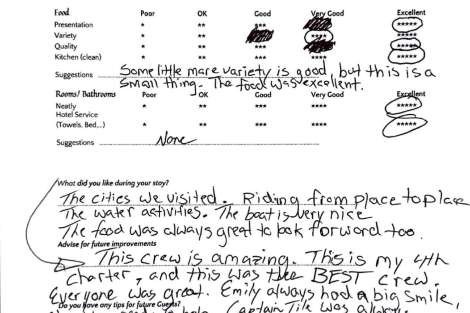 Food Poor OK Good Very Good Excellent
Presentation * ** *** *****
Variety * ** **** *****
Quality * ** *** *****
Kitchen (clean) * ** *** **** *****
Suggestions Some little more variety is good, but this is a
small thing. The food was excellent.
Rooms/ Bathrooms Poor OK Good Very Good Excellent
Neatly * ** *** **** *****
Hotel Service
(Towels, Bed,..) * ** *** **** *****
Suggestions None
What did you like during your stay?
The cities we visited. Riding from place to place
The water activities. The boat is very nice
The food was always great to look forword too.
Advise for future improvements
This crew is amazing. This is my 4th
charter, and this was the BEST crew.
Everyone was great. Emily always had a big smile,
Do you have any tips for future Guests?
Captain was always